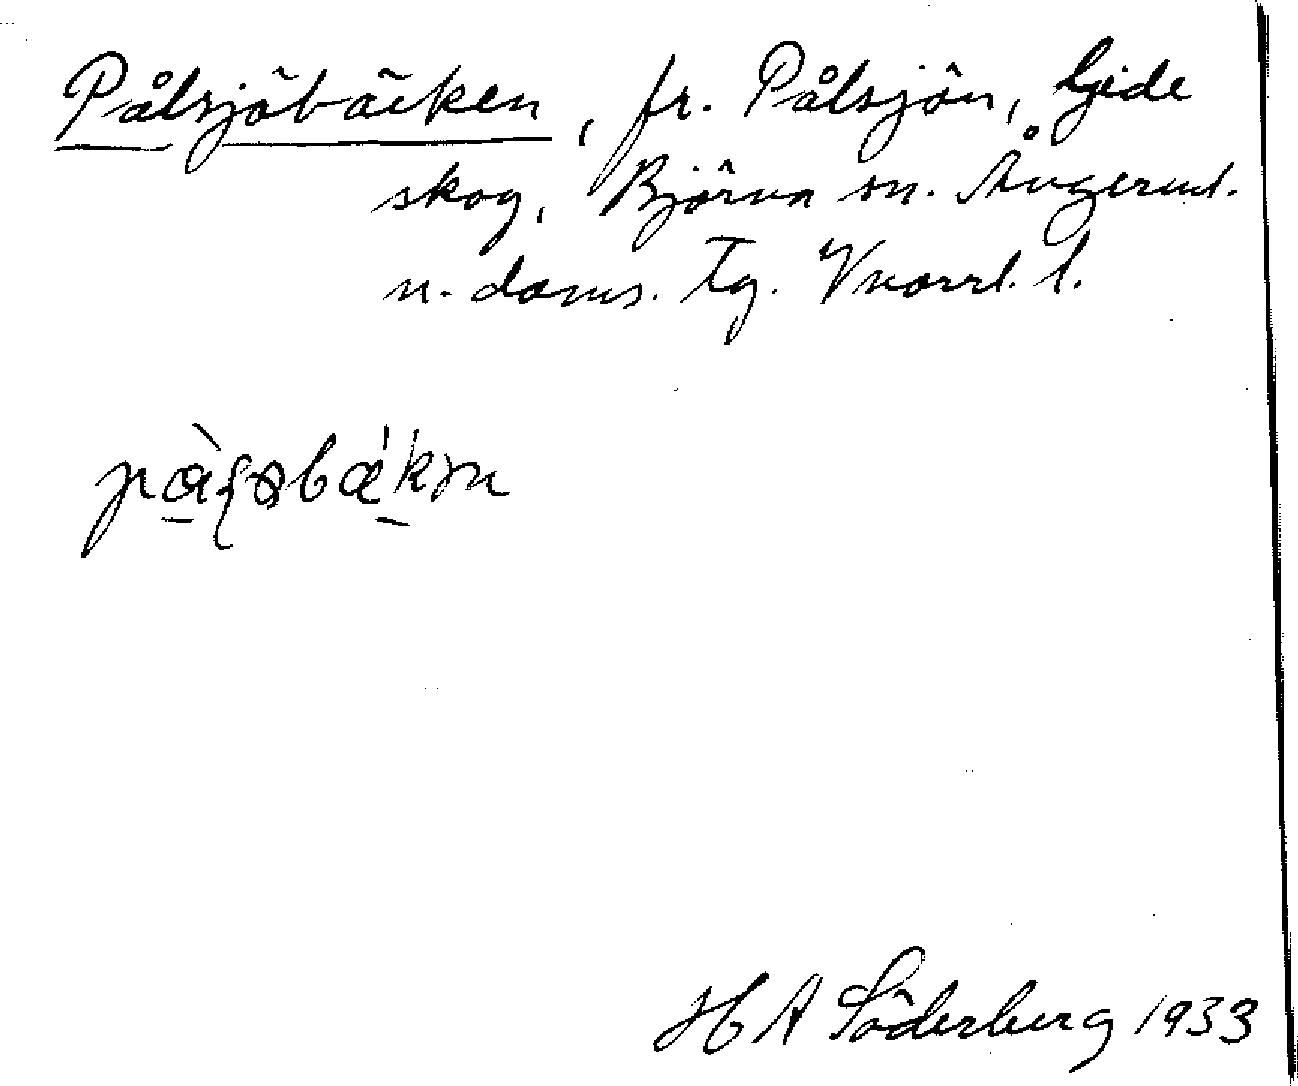 Pålsjöbäcken, fr. Pålsjön, Gide
skog, Björna sn. Ångerml.
n. doms. tg. Vnorrl. l.
H A Söderberg 1933